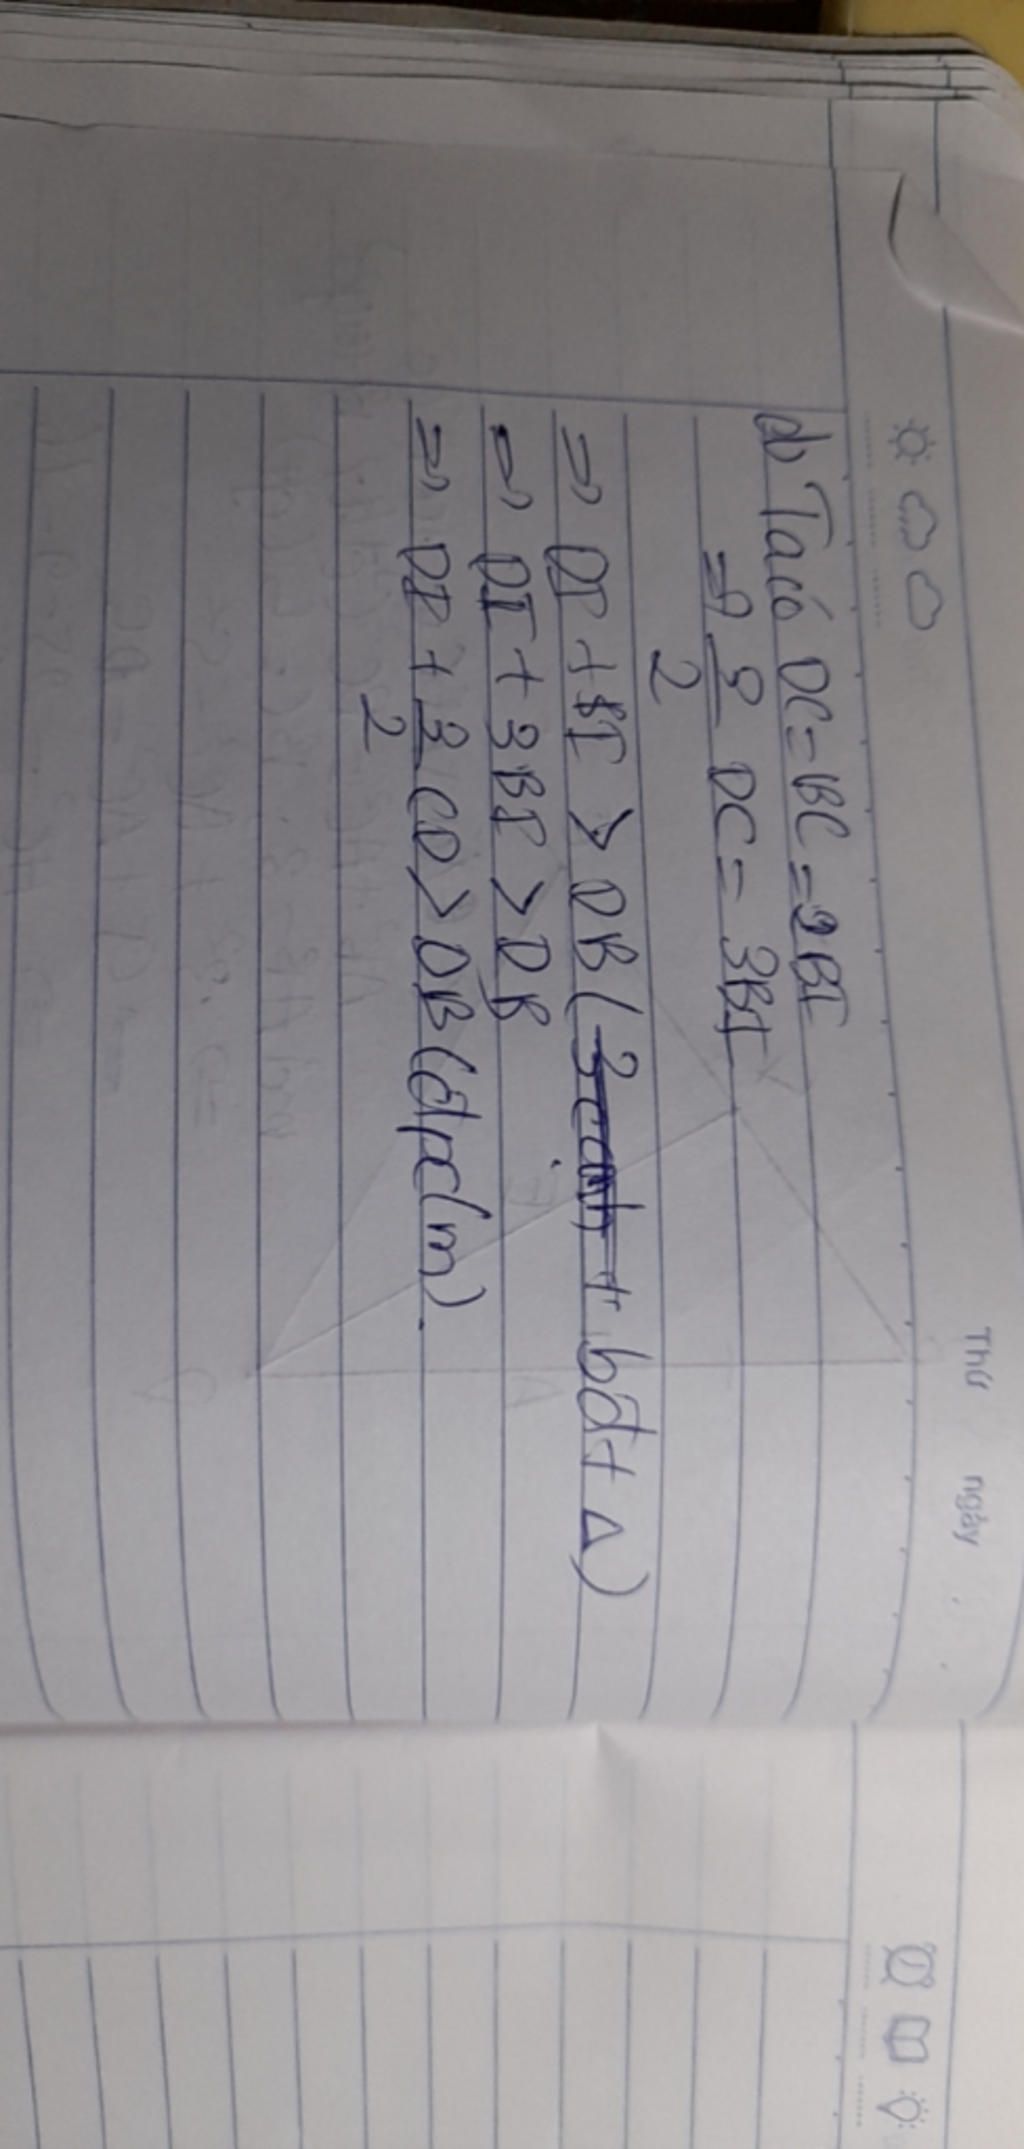 Thứ ngày
d) Ta có DC = BC = 2BI
=> 3/2 DC = 3BI
=> DI + BI > DB ( bđt Δ)
=> DI + 3BI > DB
=> DI + 3/2 CD > DB (đpcm).